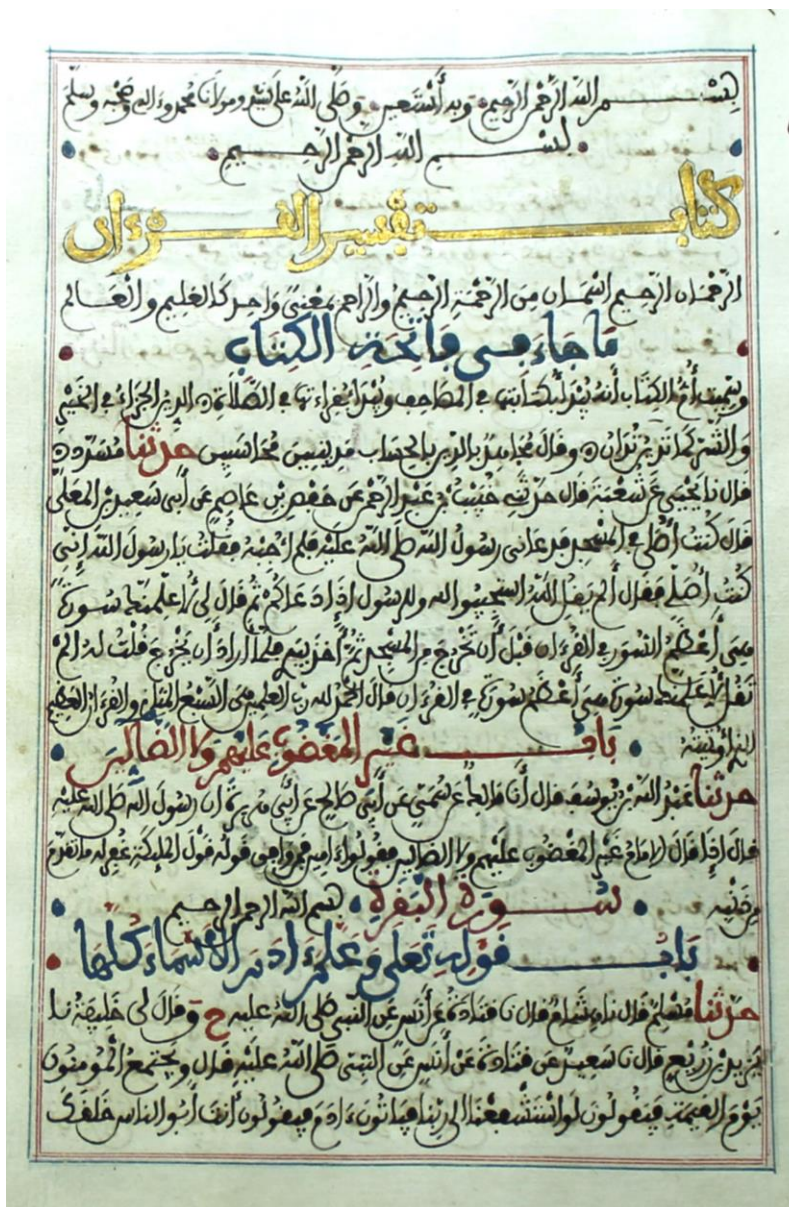 بسم الله الرحمن الرحيم وبه أستعين وصلى الله على سيدنا ومولانا محمد وءاله وصحبه وسلم
بسم الله الرحمن الرحيم
كتاب تفسير القرءان
الرحمان الرحيم اسمان من الرحمة الرحيم والراحم بمعنى واحد كالعليم والعالم
ما جاء في فاتحة الكتاب
وسميت أم الكتاب أنه يبدأ بكتابتها في المصاحف ويبدأ بقراءتها في الصلاة الدين الجزاء في الخير
والشر كما تدين تدان وقال مجاهد بالدين بالحساب مدينين محاسبين حدثنا مسدد
قال نا يحيى عن شعبة قال حدثني خبيب بن عبد الرحمن عن حفص بن عاصم عن أبي سعيد بن المعلى
قال كنت أصلي في المسجد فدعاني رسول الله صلى الله عليه فلم أجبه فقلت يا رسول الله إني
كنت أصلي فقال ألم يقل الله استجيبوا لله وللرسول إذا دعاكم ثم قال لي لأعلمنك سورة
هي أعظم السور في القرءان قبل أن تخرج من المسجد ثم أخذ بيدي فلما أراد أن يخرج قلت له ألم
تقل لأعلمنك سورة هي أعظم سورة في القرءان قال الحمد لله رب العلمين هي السبع المثاني والقرءان العظيم
الذي أوتيته باب غير المغضوب عليهم ولا الضالين
حدثنا عبد الله بن يوسف قال أنا مالك عن سمي عن أبي صالح عن أبي هريرة أن رسول الله صلى الله عليه
قال إذا قال الإمام غير المغضوب عليهم ولا الضالين فقولوا ءامين فمن وافق قوله قول الملئكة غفر له ما تقدم
من ذنبه سورة البقرة بسم الله الرحمن الرحيم
باب قوله تعلى وعلم ءادم الأسماء كلها
حدثنا مسلم قال نا هشام قال نا قتادة عن أنس عن النبي صلى الله عليه ح وقال لي خليفة نا
يزيد بن زريع قال نا سعيد عن قتادة عن أنس عن النبي صلى الله عليه قال ويجتمع المومنون
يوم القيمة فيقولون لو استشفعنا إلى ربنا فياتون ءادم فيقولون أنت أبو الناس خلقك